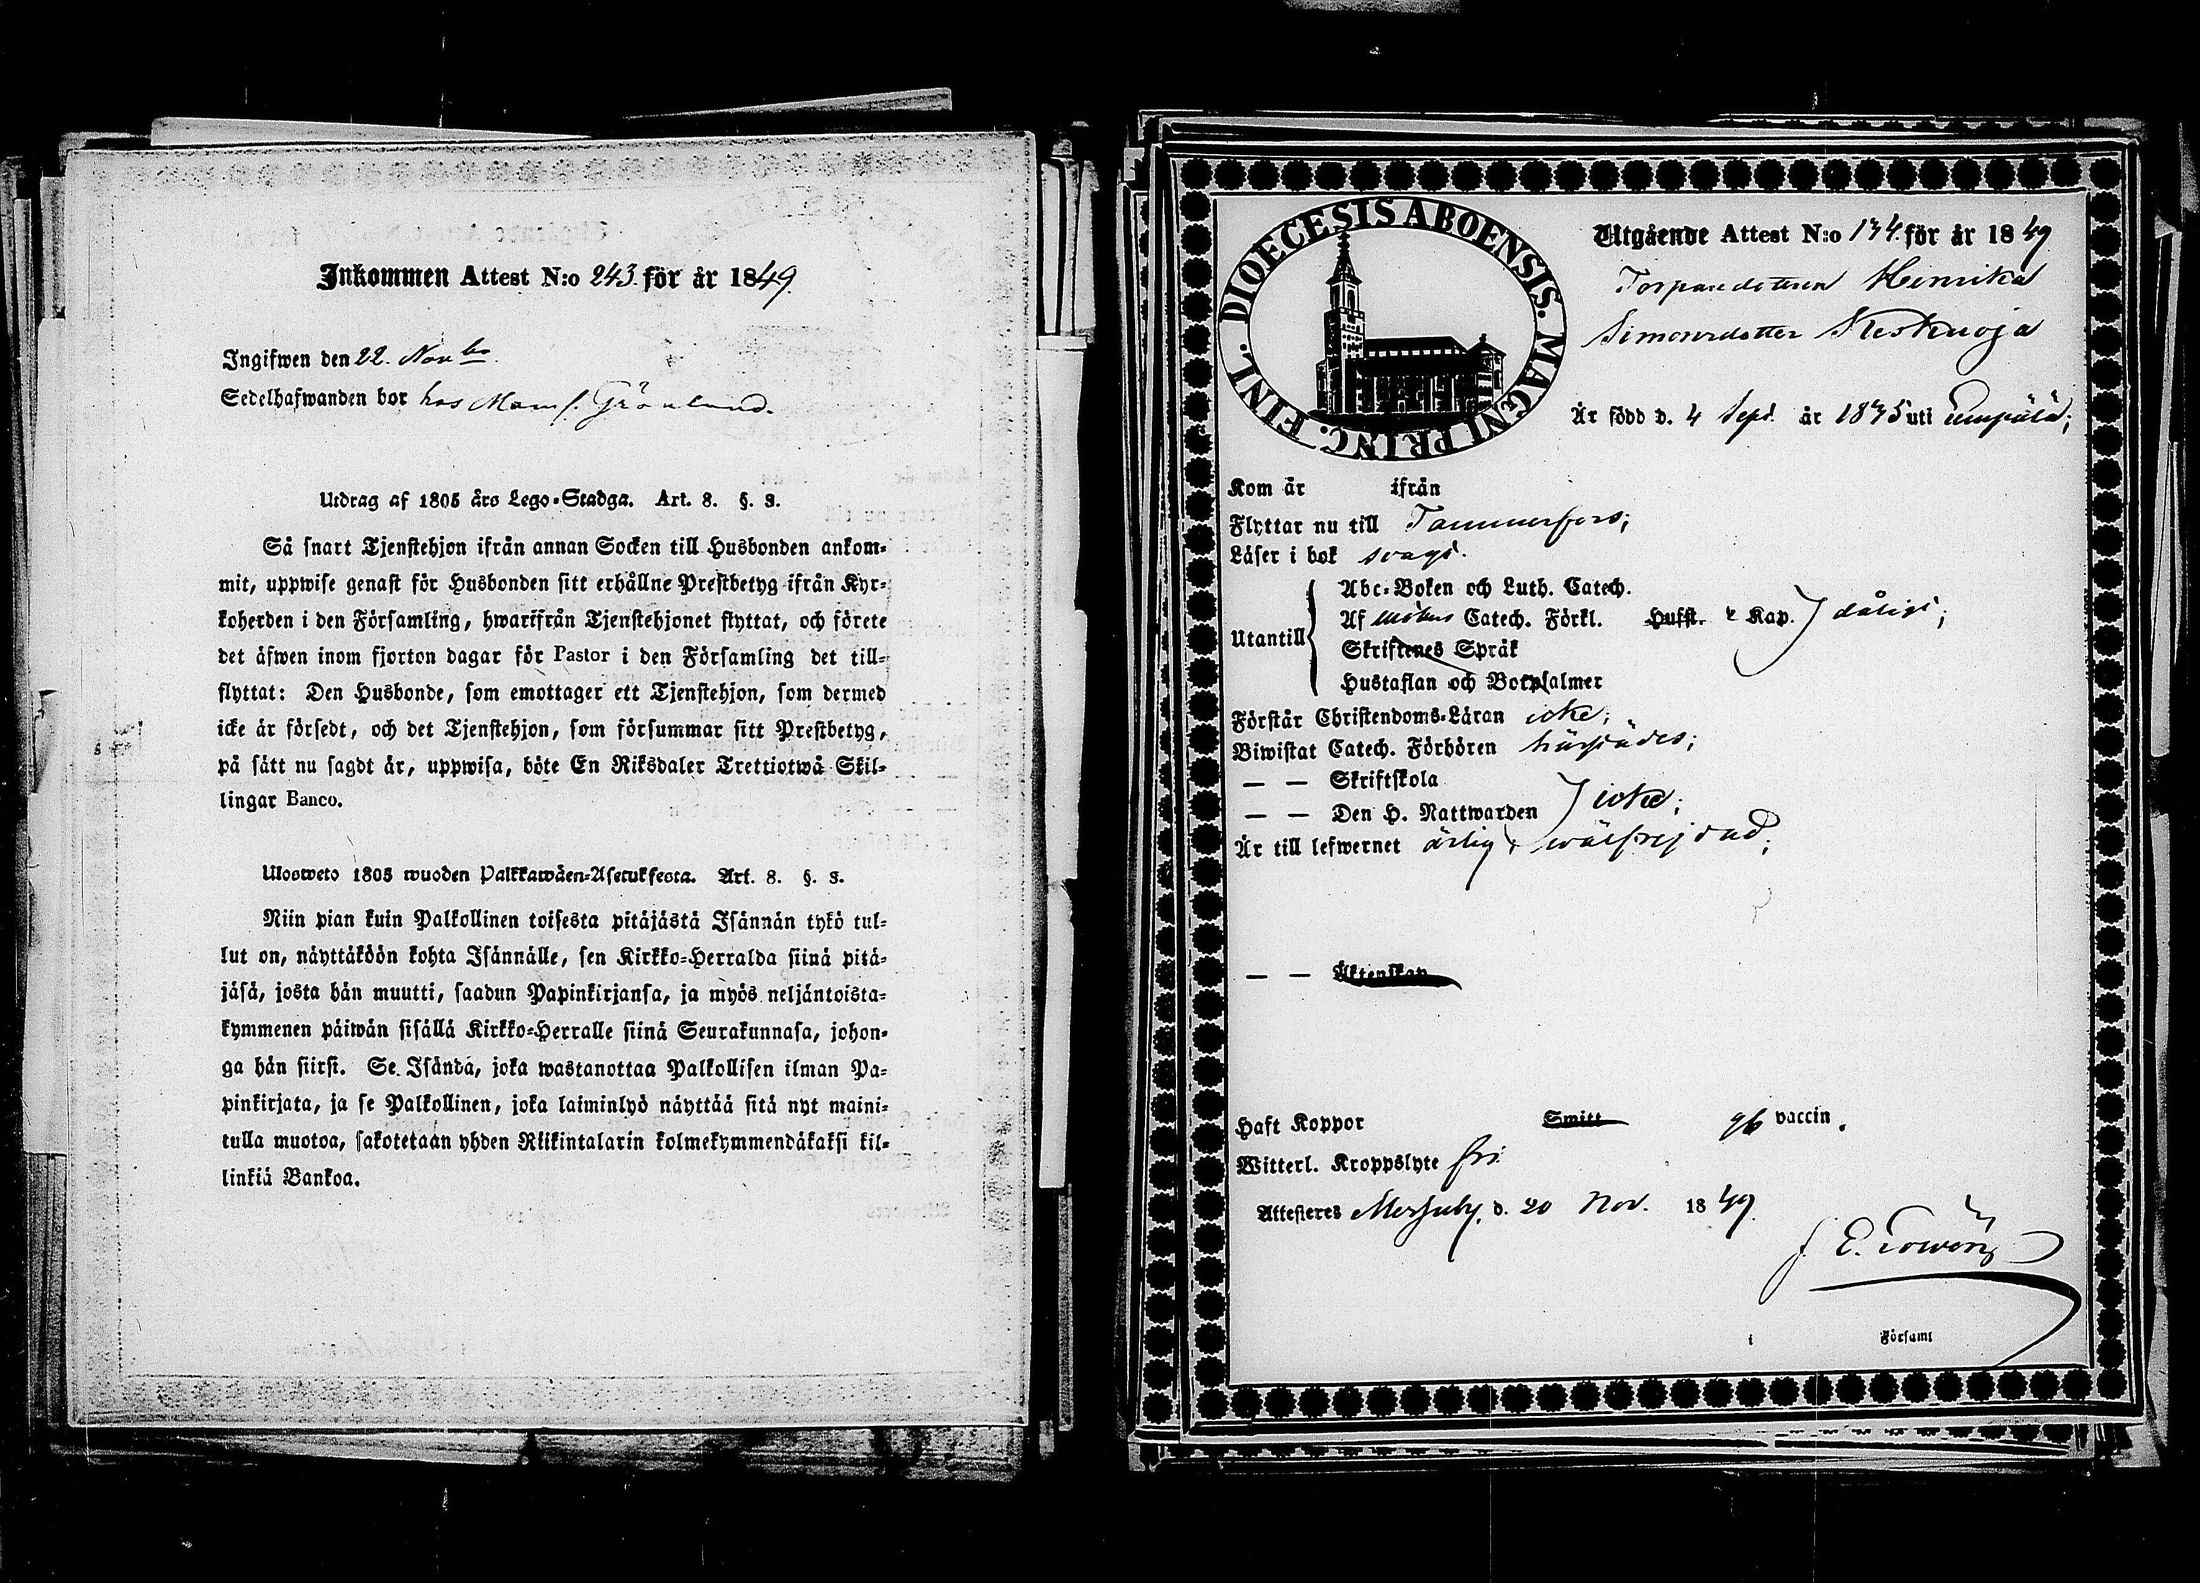 Inkommen Attest N:o 243. för år 1849.
Ingifwen den 22. Novbr
Sedelhafwanden bor hos Mams. Grönlund.
Utdrag af 1805 års Lego-Stadga. Art. 8. §. 3.
Så snart Tjenstehjon ifrån annan Socken till Husbonden ankom-
mit, uppwise genast för Husbonden sitt erhållne Prestbetyg ifrån Kyr-
koherden i den Församling, hwarifrån Tjenstehjonet flyttat, och förete
det äfwen inom fjorton dagar för Pastor i den Församling det till-
flyttat: Den Husbonde, som emottager ett Tjenstehjon, som dermed
icke är försedt, och det Tjenstehjon, som försummar sitt Prestbetyg,
på sätt nu sagdt är, uppwisa, böte En Riksdaler Trettiotwå Skil-
lingar Banco.
Ulosweto 1805 wuoden Palkkawäen-Asetuksesta. Art. 8. §. 3.
Niin pian kuin Palkollinen toisesta pitäjästä Isännän tykö tul-
lut on, näyttäköön kohta Isännälle, sen Kirkko-Herralda siinä pitä-
jäsä, josta hän muutti, saadun Papinkirjansa, ja myös neljäntoista-
kymmenen päiwän sisällä Kirkko-Herralle siinä Seurakunnasa, johon-
ga hän siirsi. Se Isändä, joka wastanottaa Palkollisen ilman Pa-
pinkirjata, ja se Palkollinen, joka laiminlyö näyttää sitä nyt maini-
tulla muotoa, sakotetaan yhden Riikintalarin kolmekymmendäkaksi kil-
linkiä Bankoa.
DIOECESIS ABOENSIS. MAGNI PRINC. FINL.
Utgående Attest N:o 134. för år 1849
Torparedotteren Henrika
Simonsdotter Keskuoja
Är född d. 4 Sept. år 1835 uti Lempälä;
Kom år ifrån
Flyttar nu till Tammerfors;
Läser i bok svagt.
Utantill
Abc-Boken och Luth. Catech.
Af Möllers Catech. Förkl. Hufst. 2 Kap. dåligt;
Skriftenes Språk
Hustaflan och Botpsalmer
Förstår Christendoms-Läran icke;
Biwistat Catech. Förhören härstädes;
— — Skriftskola
— — Den H. Nattwarden icke;
Är till lefwernet ärlig, wälfrejdad;
— — Äktenskap
Haft Koppor Smitt gb vaccin.
Witterl. Kroppslyte fri
Attesteres Messuby, d. 20 Nov. 1849.
i Församl